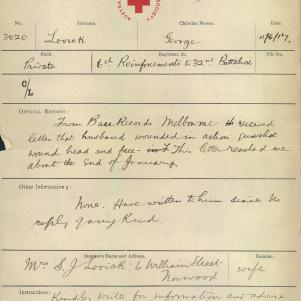 AUSTRA
SOCIETY
No. Surname. Christian Names.
3020 Lovick George 11/6/17.
Rank. Regiment, &c. File No.
Private 6th Reinforcements to 32nd Battalion
C/L
OFFICIAL REPORTS:
From Base Records Melbourne received
letter that husband wounded in action gunshot
wound head and face This letter reached me
about the end of January.
Other Information:
None. Have written to him since. No
reply of any kind.
Inquirer's Name and Address.
Mrs S. J Lovick: 6 William Street wife
Norwood
Instructions:
Kindly write for information and advise